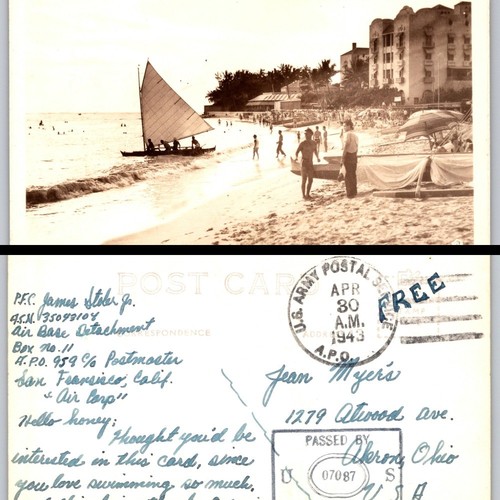 POST CARD
P.F.C. James Steler Jr.
A.S.N. 35042104
Air Base Detachment
Box No. 11
A.P.O. 959 c/o Postmaster
San Fransisco, Calif.
"Air Corp"
Hello honey:
Thought you'd be
interested in this card, since
you love swimming so much,
CORRESPONDENCE
U.S. ARMY POSTAL SERVICE
APR
30
A.M.
1943
A.P.O.
FREE
Jean Myers
1279 Atwood ave.
Akron, Ohio
U.S.A.
PASSED BY
U 07087 S